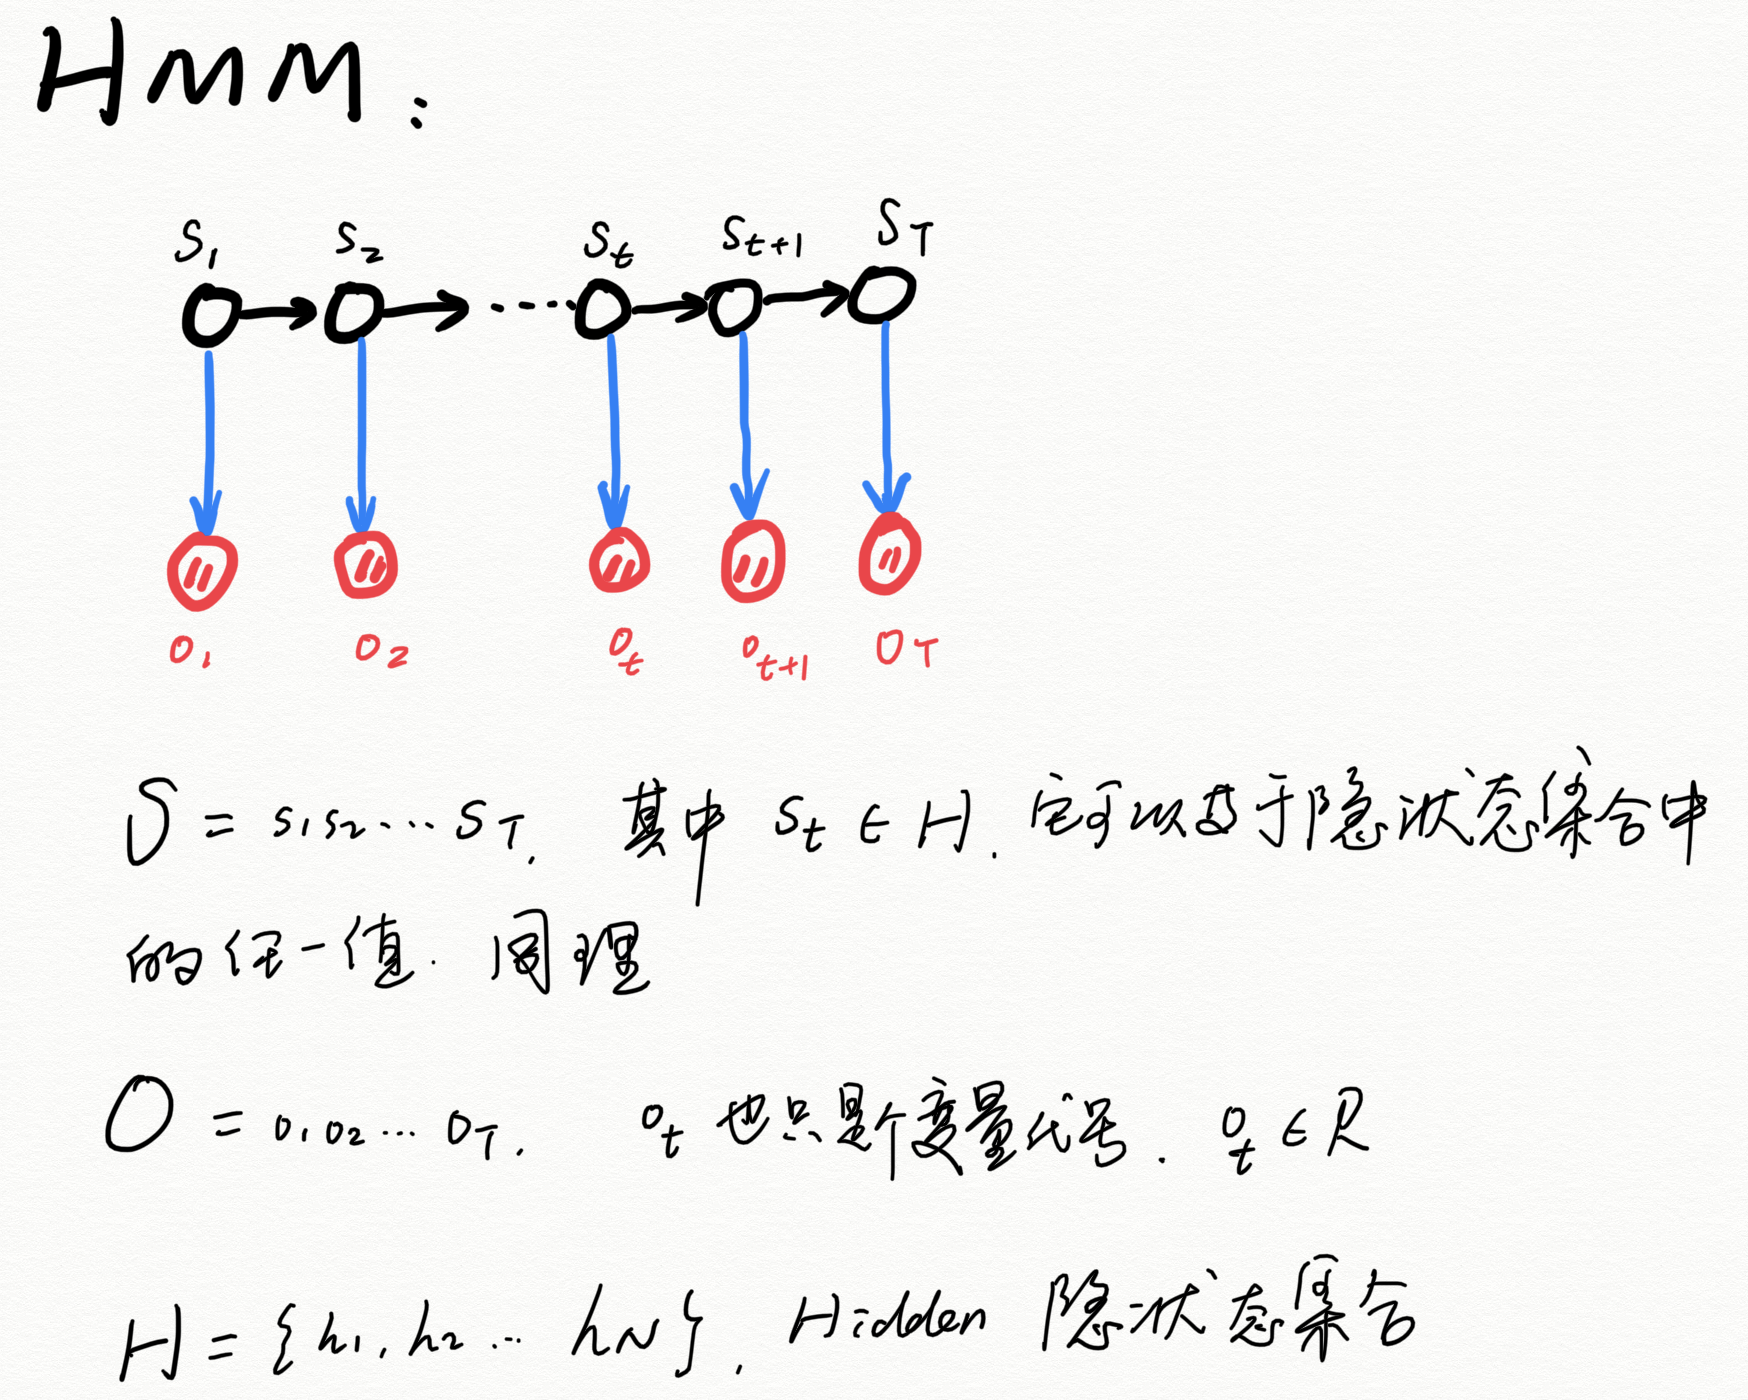 HMM:
S₁ S₂ Sₜ Sₜ₊₁ S_T
O₁ O₂ Oₜ Oₜ₊₁ O_T
S = S₁S₂···S_T. 其中 Sₜ ∈ H. 它可以等于隐状态集合中
的任一值. 同理
O = O₁O₂··· O_T. Oₜ 也只是个变量代号. Oₜ ∈ R
H = {h₁, h₂ ··· h_N}, Hidden 隐状态集合